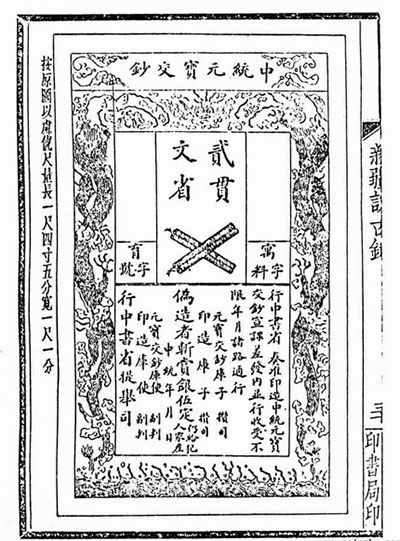 新疆訪古錄
印書局印
中統元寶交鈔
貳貫
文省
字料
育字號
行中書省 奏准印造中統元寶
交鈔宣課差發內並行收受不
限年月諸路通行
元寶交鈔庫子 攢司
印造庫子 攢司
偽造者斬賞銀伍定 仍給犯人家產
中統年月日
元寶交鈔庫使 副判
印造庫使 副判
行中書省提舉司
按原圖以慮俿尺量長一尺四寸五分寬一尺一分